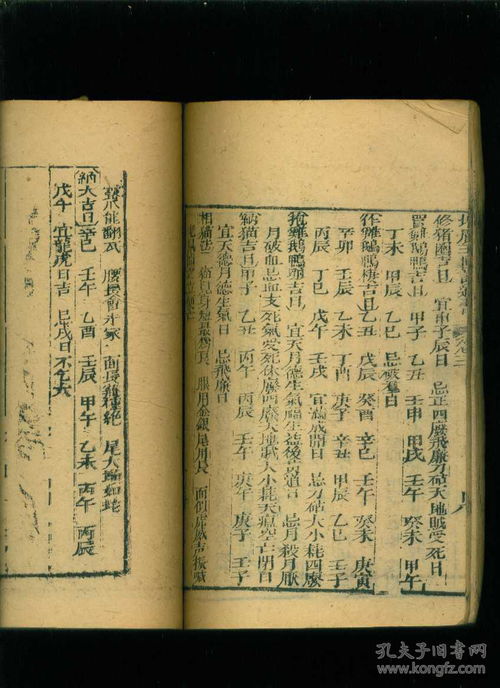 修猪圈吉日 宜申子辰日 忌正四廢飛廉刀砧天地賊受死日
買雞鵝鴨吉日 甲子 乙丑 壬申 甲戌 壬午 癸未 甲午
丁未 甲辰 乙巳 忌破羣日
作雞鵝鴨棲吉日 乙丑 戊辰 癸酉 辛巳 壬午 癸未 庚寅
辛卯 壬辰 乙未 丁酉 庚子 辛丑 甲辰 乙巳 壬子
丙辰 丁巳 戊午 壬戌 宜滿成開日 忌刀砧大小耗四廢
抱雞鵝鴨卵吉日 宜天月德生氣福生益後 忌月殺月厭
月破血忌血支死休廢四廢大地賊大小耗天瘟空亡閉日
納猫吉日 甲子 乙丑 丙午 丙辰 壬午 庚午 庚子 壬子
宜天德月德生氣日 忌飛廉日
相猫法 猫兒身短最為良 眼用金銀尾用長 面似虎威声振喊
露爪能翻瓦 腰長會走家 面長雞種絶 尾大懶如蛇
納犬吉日 辛巳 壬午 乙酉 壬辰 甲午 乙未 丙午 丙辰
戊午 宜龍虎日吉 忌戌日不乞犬
孔夫子旧书网
www.kongfz.com